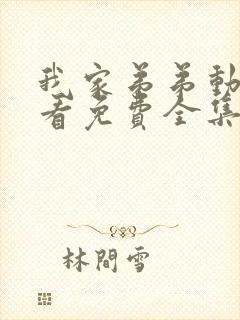 我家弟弟動
看免費全集
林間雪